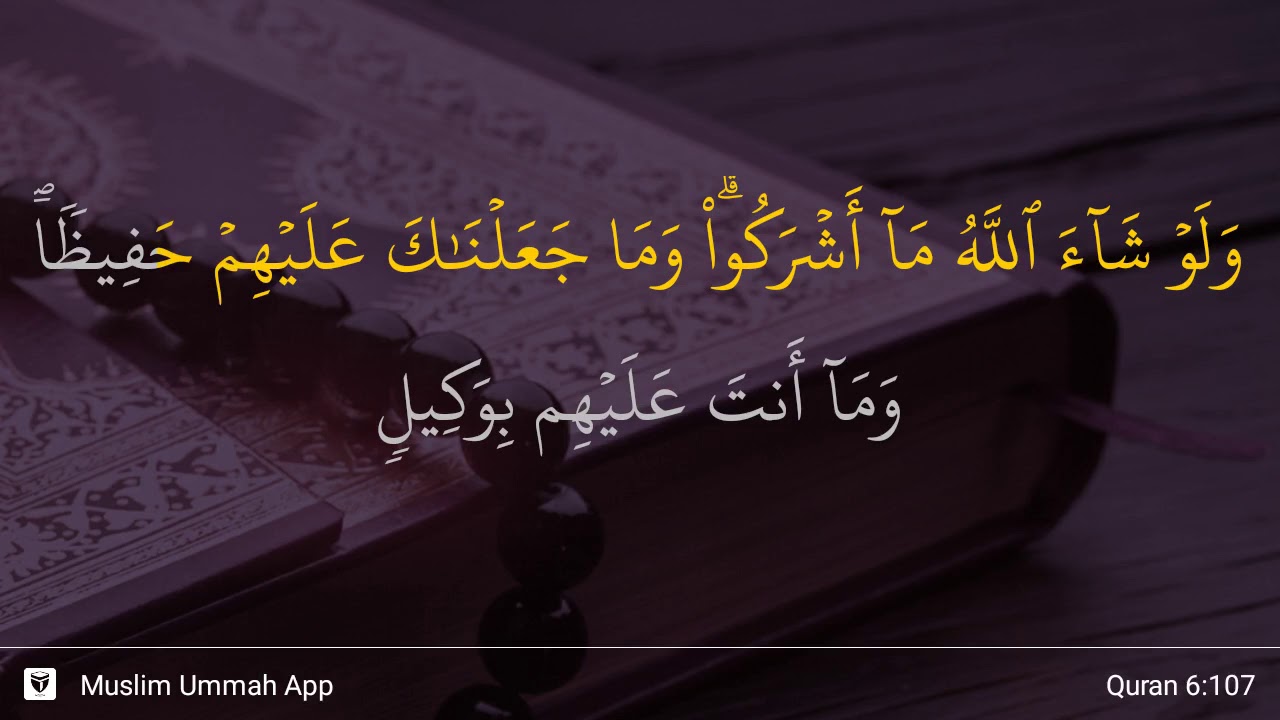 وَلَوۡ شَآءَ ٱللَّهُ مَآ أَشۡرَكُواْۗ وَمَا جَعَلۡنَٰكَ عَلَيۡهِمۡ حَفِيظٗاۖ
وَمَآ أَنتَ عَلَيۡهِم بِوَكِيلٖ
Muslim Ummah App
Quran 6:107